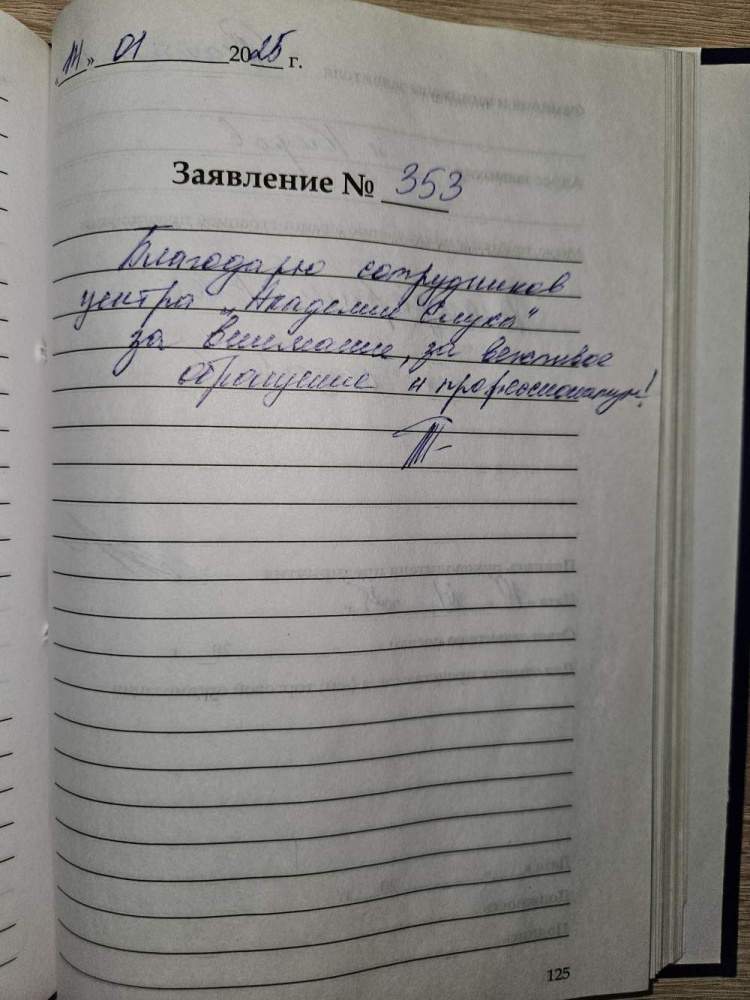 « » 01 2025 г.
Заявление № 353
Благодарю сотрудников
центра „Академии Слуха“
за внимание, за вежливое
обращение и профессионализм!
125